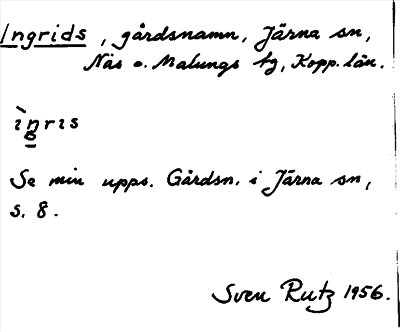 Ingrids, gårdsnamn, Järna sn,
Näs o. Malungs tg, Kopp. län.
ìŋris
Se min upps. Gårdsn. i Järna sn,
s. 8.
Sven Rutz 1956.